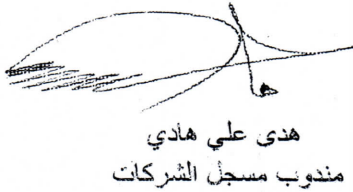 هدى علي هادي
مندوب مسجل الشركات